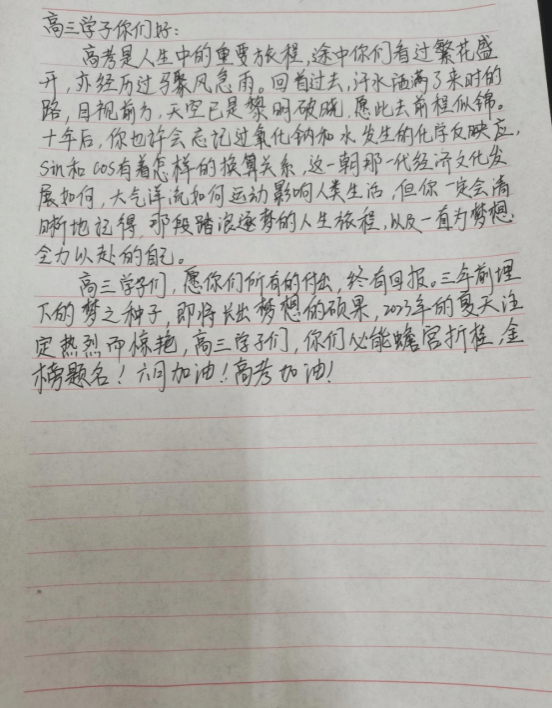 高三学子你们好:
高考是人生中的重要旅程,途中你们看过繁花盛
开,亦经历过马聚风急雨。回首过去,汗水洒满了来时的
路,目视前方,天空已是黎明破晓,愿此去前程似锦。
十年后,你也许会忘记过氧化钠和水发生的化学反映应,
Sin和cos有着怎样的换算关系,这一朝那一代经济文化发
展如何,大气洋流如何运动影响人类生活,但你一定会清
晰地记得,那段踏浪逐梦的人生旅程,以及一直为梦想
全力以赴的自己。
高三学子们,愿你们所有的付出,终有回报。三年前埋
下的梦之种子,即将长出梦想的硕果,2023年的夏天注
定热烈而惊艳,高三学子们,你们必能蟾宫折桂,金
榜题名!六月加油!高考加油!